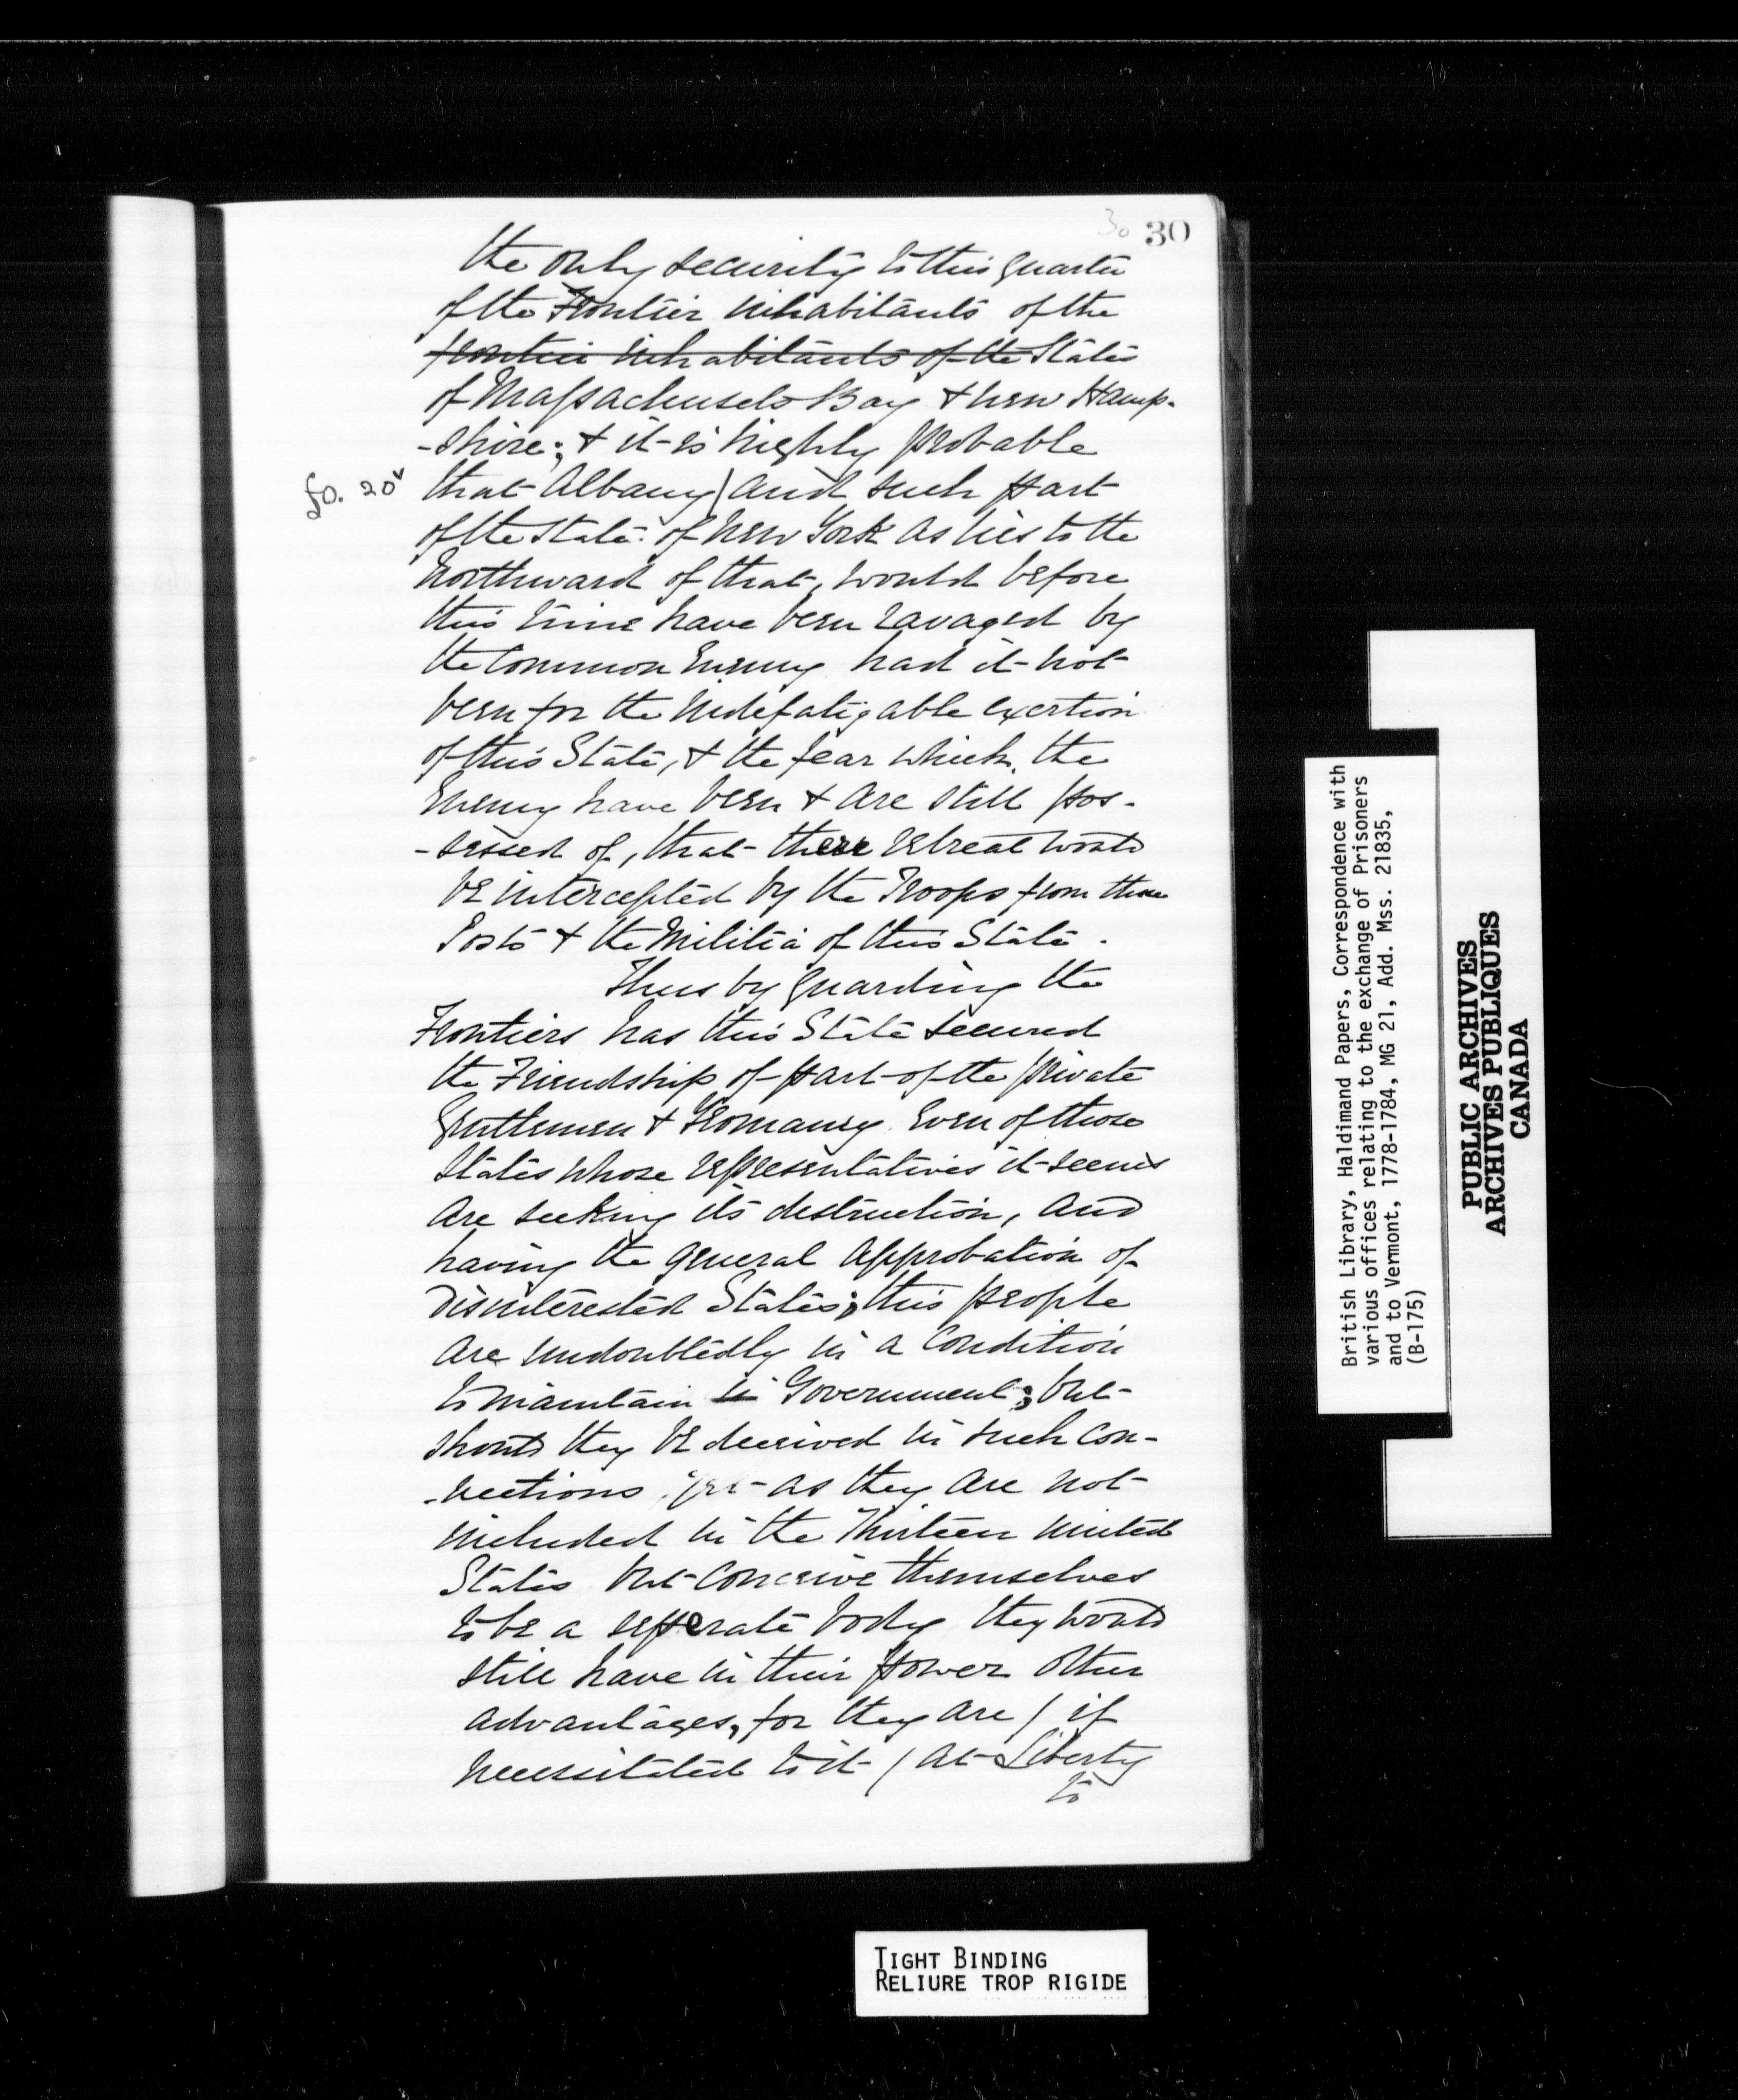 30 30
the only security to this quarter
of the Frontier inhabitants of the
frontier inhabitants of the States
of Massachusets Bay & New Hamp-
-shire; & it is highly probable
fo. 20v
that Albany) and such part
of the State of New York as lies to the
Northward of that, would before
this time have been ravaged by
the Common Enemy had it not
been for the indefatigable exertion
of this State, & the fear which the
Enemy have been & are still pos-
-sessed of, that there retreat would
be intercepted by the Troops from those
Posts & the Militia of this State.
Thus by guarding the
Frontiers has this State secured
the Friendship of part of the private
Gentlemen & Yeomanry even of those
States whose representatives it seems
are seeking its destruction, and
having the general approbation of
disinterested States; this people
are undoubtedly in a Condition
to maintain Government; but
should they be deceived in such con-
-nections yet as they are not
included in the Thirteen United
States but conceive themselves
to be a seperate body they would
still have in their power other
advantages, for they are / if
necessitated to it / at Liberty
to
British Library, Haldimand Papers, Correspondence with
various offices relating to the exchange of Prisoners
and to Vermont, 1778-1784, MG 21, Add. Mss. 21835,
(B-175)
PUBLIC ARCHIVES
ARCHIVES PUBLIQUES
CANADA
TIGHT BINDING
RELIURE TROP RIGIDE